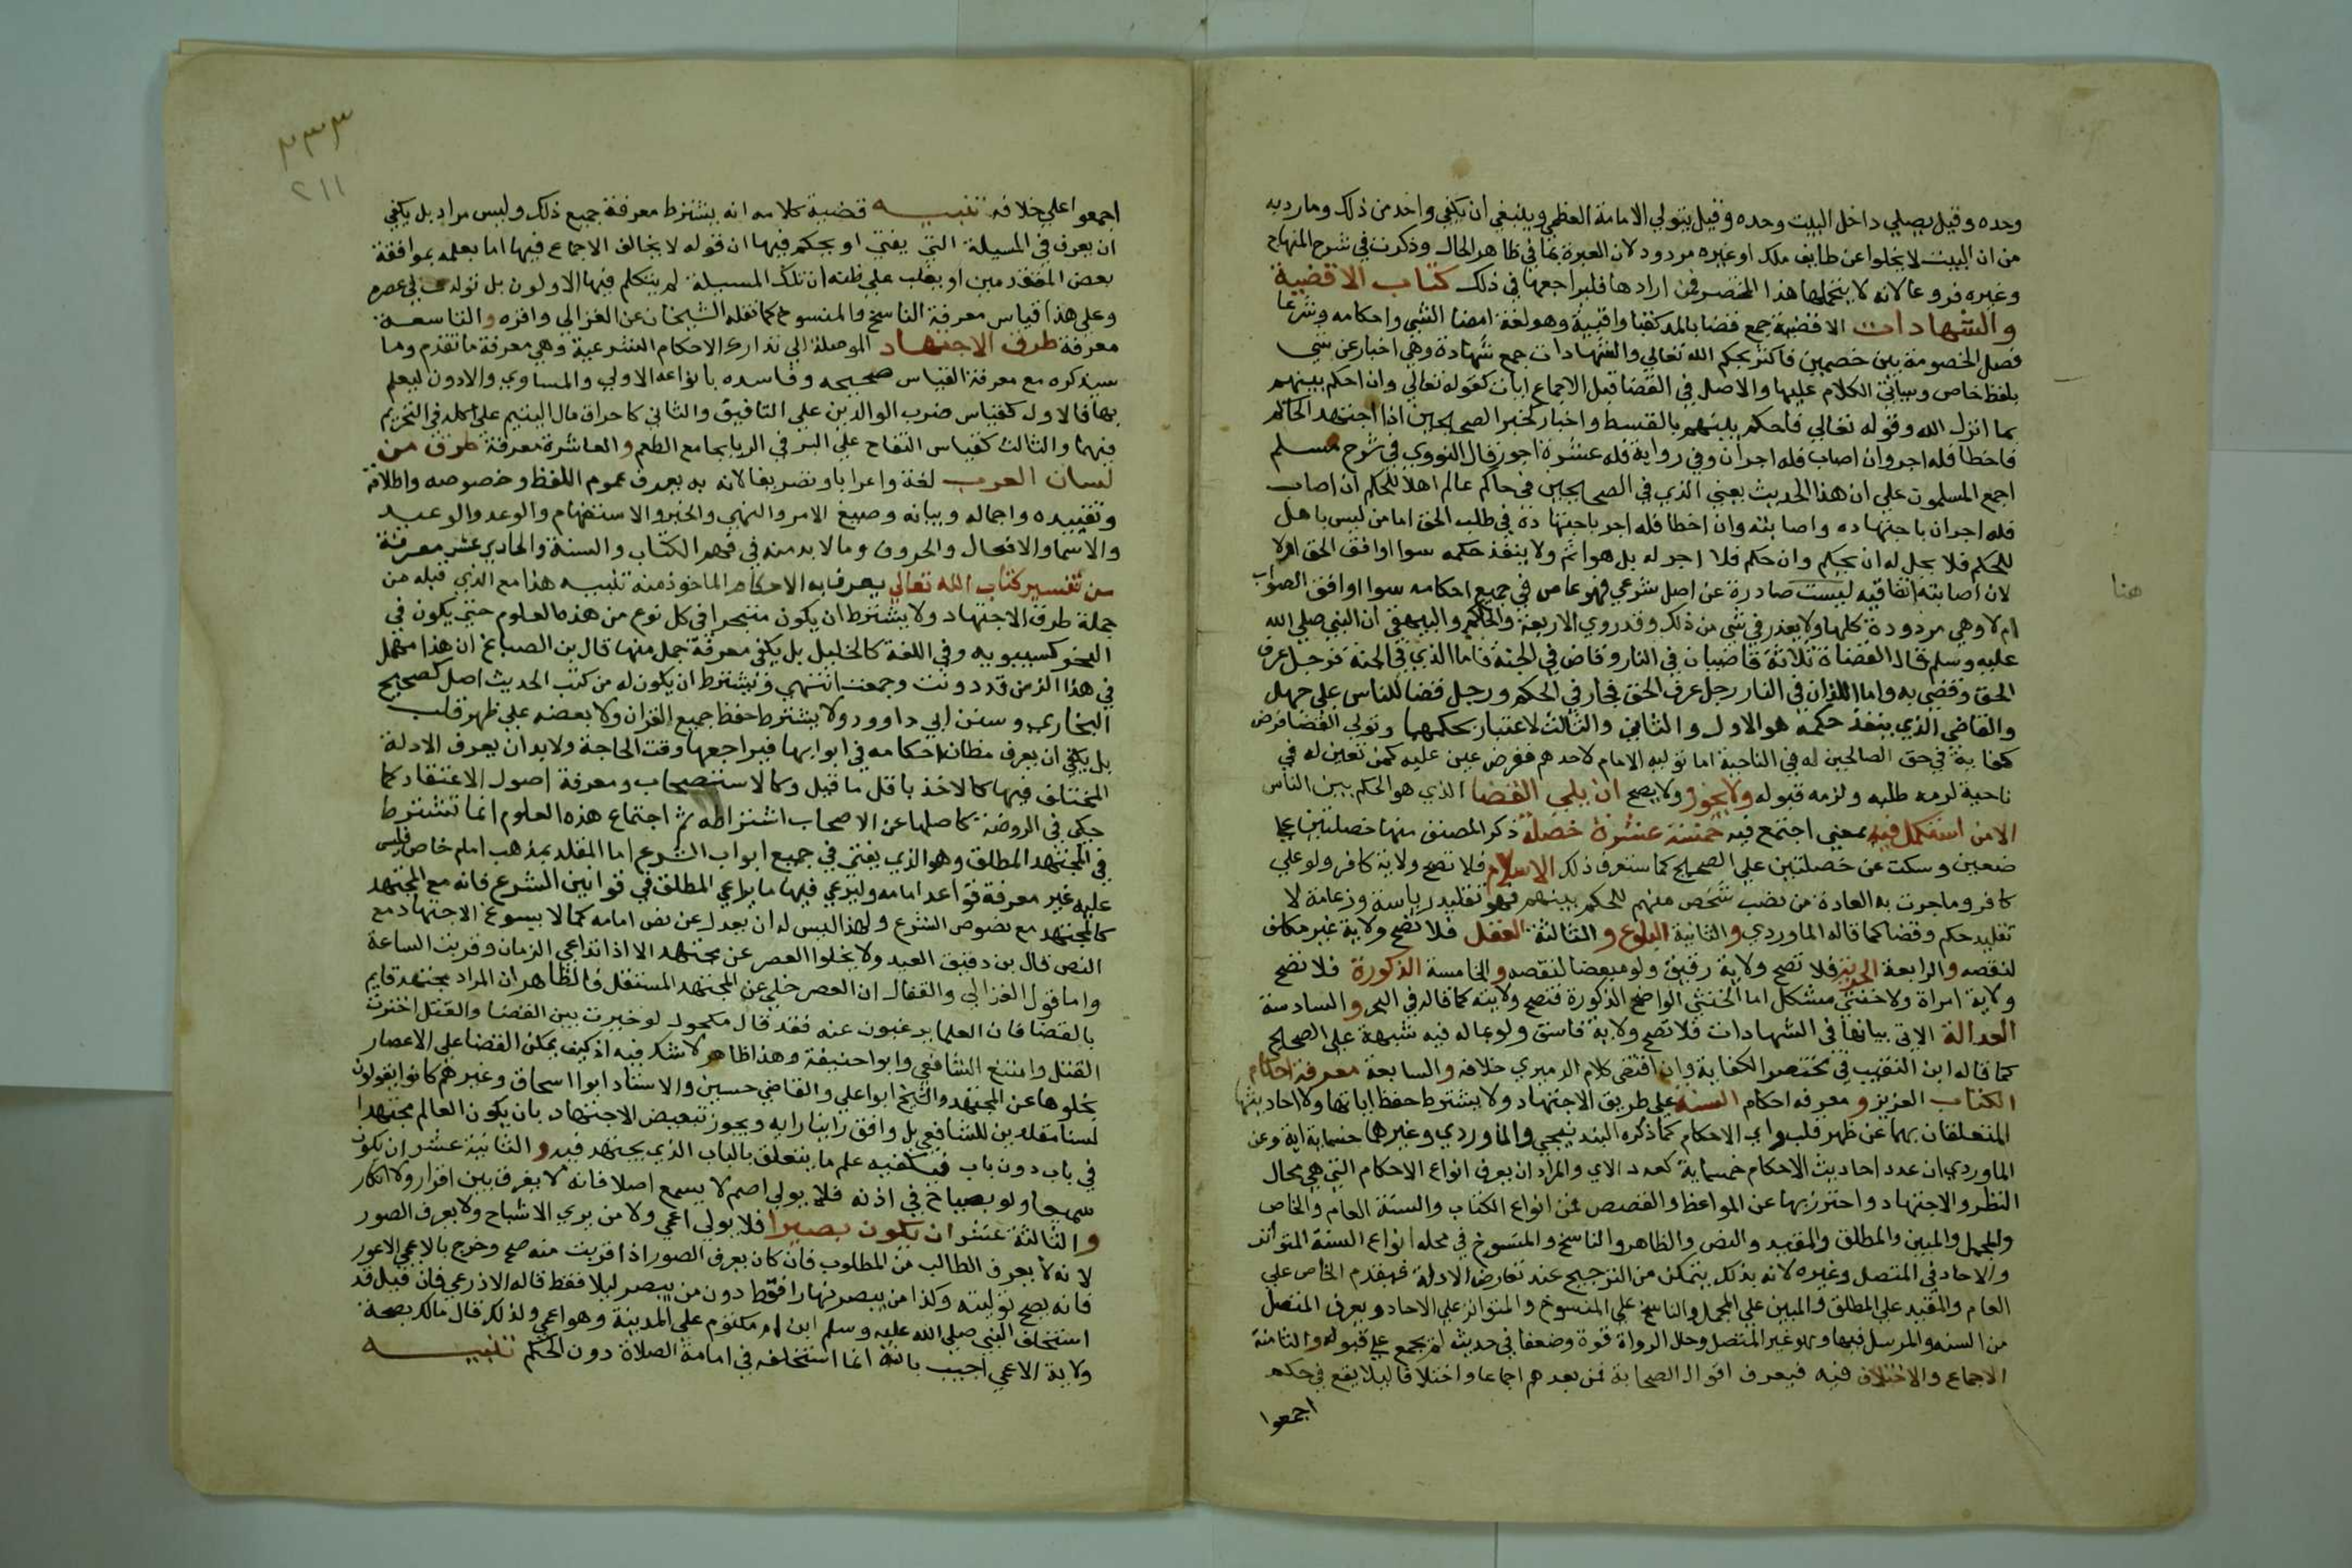 وحده وقيل يصلي داخل البيت وحده وقيل يتولي الامامة العظمي وينبغي ان يكفي واحد من ذلك وما رد به
من ان البيت لا يخلوا عن طايف ملك او غيره مردود لان العبرة بما في ظاهر الحال وذكرت في شرح المنهاج
وغيره فروعا لانه لا يتحملها هذا المختصر فمن ارادها فليراجعها في ذلك كتاب الاقضية
والشهادات الاقضية جمع قضا بالمد كقبا واقبية وهو لغة امضا الشي واحكامه وشرعا
فصل الخصومة بين خصمين فاكثر بحكم الله تعالي والشهادات جمع شهادة وهي اخبار عن شي
بلفظ خاص وسياتي الكلام عليها والاصل في القضا قبل الاجماع ايات كقوله تعالي وان احكم بينهم
بما انزل الله وقوله تعالي فاحكم بينهم بالقسط واخبار كخبر الصحيحين اذا اجتهد الحاكم
فاخطا فله اجر وان اصاب فله اجران وفي رواية فله عشرة اجور قال النووي في شرح مسلم
اجمع المسلمون علي ان هذا الحديث يعني الذي في الصحيحين في حاكم عالم اهلا للحكم ان اصاب
فله اجران باجتهاده واصابته وان اخطا فله اجر باجتهاده في طلب الحق اما من ليس باهل
للحكم فلا يحل له ان يحكم وان حكم فلا اجر له بل هو اثم ولا ينفذ حكمه سوا اوافق الحق ام لا
لان اصابته اتفاقيه ليست صادرة عن اصل شرعي فهو عاص في جميع احكامه سوا اوافق الصواب
ام لا وهي مردودة كلها ولا يعذر في شي من ذلك وقد روي الاربعة والحاكم والبيهقي ان النبي صلي الله
عليه وسلم قال القضاة ثلاثة قاضيان في النار وقاض في الجنة فاما الذي في الجنة فرجل عرف
الحق وقضي به واما اللذان في النار رجل عرف الحق فجار في الحكم ورجل قضا للناس علي جهل
والقاضي الذي ينفذ حكمه هو الاول والثاني والثالث لا عتبار بحكمهما وتولي القضا فرض
كفاية في حق الصالحين له في الناحية اما توليه الامام لاحدهم ففرض عين عليه فمن تعين له في
ناحية لزمه طلبه ولزمه قبوله ولا يجوز ولا يصح ان يلي القضا الذي هو الحكم بين الناس
الا من استكمل فيه بمعني اجتمع فيه خمسة عشرة خصلة ذكر المصنف منها خصلتين علي
ضعيف وسكت عن خصلتين علي الصحيح كما ستعرف ذلك الاسلام فلا تصح ولاية كافر ولو علي
كافر وما جرت به العادة من نصب شخص منهم للحكم بينهم فهو تقليد رياسة وزعامة لا
تقليد حكم وقضا كما قاله الماوردي والثانية البلوغ والثالثة العقل فلا تصح ولاية غير مكلف
لنقصه والرابعة الحرية فلا تصح ولاية رقيق ولو مبعضا لنقصه والخامسة الذكورة فلا تصح
ولاية امراة ولا خنثي مشكل اما الخنثي الواضح الذكورة فتصح ولايته كما قاله في البحر والسادسة
العدالة الاتي بيانها في الشهادات فلا تصح ولاية فاسق ولو بما له فيه شبهة علي الصحيح
كما قاله ابن النقيب في مختصر الكفاية وان اقتضي كلام الدميري خلافه والسابعة معرفة احكام
الكتاب العزيز ومعرفه احكام السنة علي طريق الاجتهاد ولا يشترط حفظ اياتها ولا احاديثها
المتعلقان بهما عن ظهر قلب واي الاحكام كما ذكره البندنيجي والماوردي وغيرهما خمسماية اية وعن
الماوردي ان عدد احاديث الاحكام خمسماية كعدد الاي والمراد ان يعرف انواع الاحكام التي هي محال
النظر والاجتهاد واحترز بها عن المواعظ والقصص فمن انواع الكتاب والسنة العام والخاص
والمجمل والمبين والمطلق والمقيد والنص والظاهر والناسخ والمنسوخ في محله انواع السنة المتواتر
والاحاد في المتصل وغيره لانه بذلك يتمكن من الترجيح عند تعارض الادلة فيقدم الخاص علي
العام والمقيد علي المطلق والمبين علي المجمل والناسخ علي المنسوخ والمتواتر علي الاحاد ويعرف المتصل
من السنه والمرسل فيها وهو غير المتصل وحال الرواة قوة وضعفا في حديثه لم يجمع علي قبوله والثامنة
الاجماع والاختلاف فيه فيعرف اقوال الصحابة فمن بعدهم اجماعا واختلافا ليلا يقع في حكم
اجمعوا
هنا
٣٣٣
٢١١
اجمعوا علي خلافه تنبيه قضية كلامه انه يشترط معرفة جميع ذلك وليس مراد بل يكفي
ان يعرف في المسيلة التي يفتي او يحكم فيها ان قوله لا يخالف الاجماع فيها اما بعلمه بموافقة
بعض المتقدمين او يغلب علي ظنه ان تلك المسيلة لم يتكلم فيها الاولون بل تولدت في عصره
وعلي هذا قياس معرفة الناسخ والمنسوخ كما نقله الشيخان عن الغزالي واقره والتاسعة
معرفة طرق الاجتهاد الموصلة الي تدارك الاحكام الشرعية وهي معرفة ما تقدم وما
سيذكره مع معرفة القياس صحيحه وفاسده بانواعه الاولي والمساوي والادون ليعلم
بها فالاول كقياس ضرب الوالدين علي التافيف والثاني كاحراق مال اليتيم علي اكله في التحريم
فيهما والثالث كقياس التفاح علي البر في الربا بجامع الطعم والعاشرة معرفة طرف من
لسان العرب لغة واعرابا وتصريفا لانه به يعرف عموم اللفظ وخصوصه واطلاقه
وتقييده واجماله وبيانه وصيغ الامر والنهي والخبر والاستفهام والوعد والوعيد
والاسما والافعال والحروف وما لا بد منه في فهم الكتاب والسنة والحادي عشر معرفة
من تفسير كتاب الله تعالي يعرف به الاحكام الماخوذ منه تنبيه هذا مع الذي قبله من
جملة طرق الاجتهاد ولا يشترط ان يكون متبحرا في كل نوع من هذه العلوم حتي يكون في
النحو كسيبويه وفي اللغة كالخليل بل يكفي معرفة جمل منها قال بن الصباغ ان هذا سهل
في هذا الزمن قد دونت وجمعت انتهي ويشترط ان يكون له من كتب الحديث اصل كصحيح
البخاري وسنن ابي داوود ولا يشترط حفظ جميع القران ولا بعضه علي ظهر قلب
بل يكفي ان يعرف مظان احكامه في ابوابها فيراجعها وقت الحاجة ولا بد ان يعرف الادلة
المختلف فيها كالاخذ باقل ما قيل وكالاستصحاب ومعرفة اصول الاعتقاد كما
حكي في الروضة كاصلها عن الاصحاب اشتراطه ثم اجتماع هذه العلوم انما تشترط
في المجتهد المطلق وهو الذي يفتي في جميع ابواب الشرع اما المقلد بمذهب امام خاص فليس
عليه غير معرفة قواعد امامه وليرعي فيها ما يراعي المطلق في قوانين الشرع فانه مع المجتهد
كالمجتهد مع نصوص الشرع ولهذا ليس له ان يعدل عن نص امامه كما لا يسوغ الاجتهاد مع
النص قال بن دقيق العيد ولا يخلوا العصر عن مجتهد الا اذا تداعي الزمان وقربت الساعة
واما قول الغزالي والقفال ان العصر خلي عن المجتهد المستقل فالظاهر ان المراد مجتهد قايم
بالقضا فان العلما يرغبون عنه فقد قال مكحول لو خيرت بين القضا والقتل اخترت
القتل وامتنع الشافعي وابوا حنيفة وهذا ظاهر لا شك فيه اذ كيف يمكن القضا علي الاعصار
بخلوها عن المجتهد والشيخ ابوا علي والقاضي حسين والاستاد ابوا اسحاق وغيرهم كانوا يقولون
لسنا مقلدين للشافعي بل وافق راينا رايه ويجوز تبعيض الاجتهاد بان يكون العالم مجتهدا
في باب دون باب فيكفيه علم ما يتعلق بالباب الذي يجتهد فيه والثانية عشر ان يكون
سميعا ولو بصياح في اذنه فلا يولي اصم لا يسمع اصلا فانه لا يفرق بين اقرار ولا انكار
والثالثة عشر ان يكون بصيرا فلا يولي اعمي ولا من يري الاشباح ولا يعرف الصور
لانه لا يعرف الطالب من المطلوب فان كان يعرف الصور اذا قربت منه صح وخرج بالاعمي الاعور
فانه يصح توليته وكذا من يبصر نهارا فقط دون من يبصر ليلا فقط قاله الاذرعي فان قيل قد
استخلف النبي صلي الله عليه وسلم ابن ام مكتوم علي المدينة وهو اعمي ولذلك قال مالك بصحة
ولاية الاعمي اجيب بانه انما استخلفه في امامة الصلاة دون الحكم تنبيه